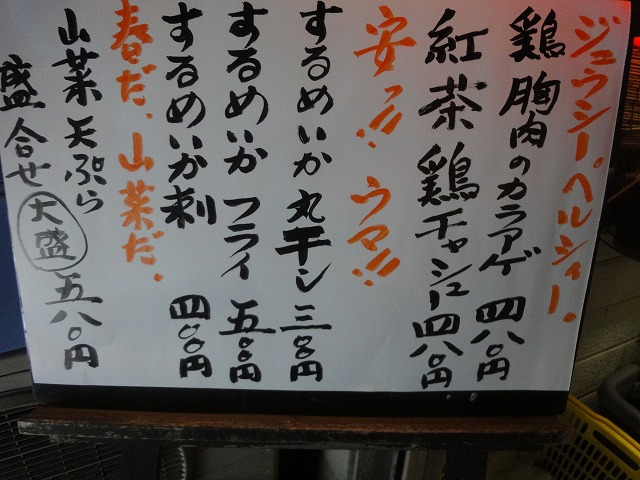 ジュウシー。ヘルシィー。
鶏胸肉のカラアゲ 四八〇円
紅茶鶏チャシュー 四八〇円
安ッ!! ウマ!!
するめいか 丸干し 三〇〇円
するめいか フライ 五〇〇円
するめいか刺 四〇〇円
春だ、山菜だ、
山菜天ぷら
盛合せ 大盛 五八〇円